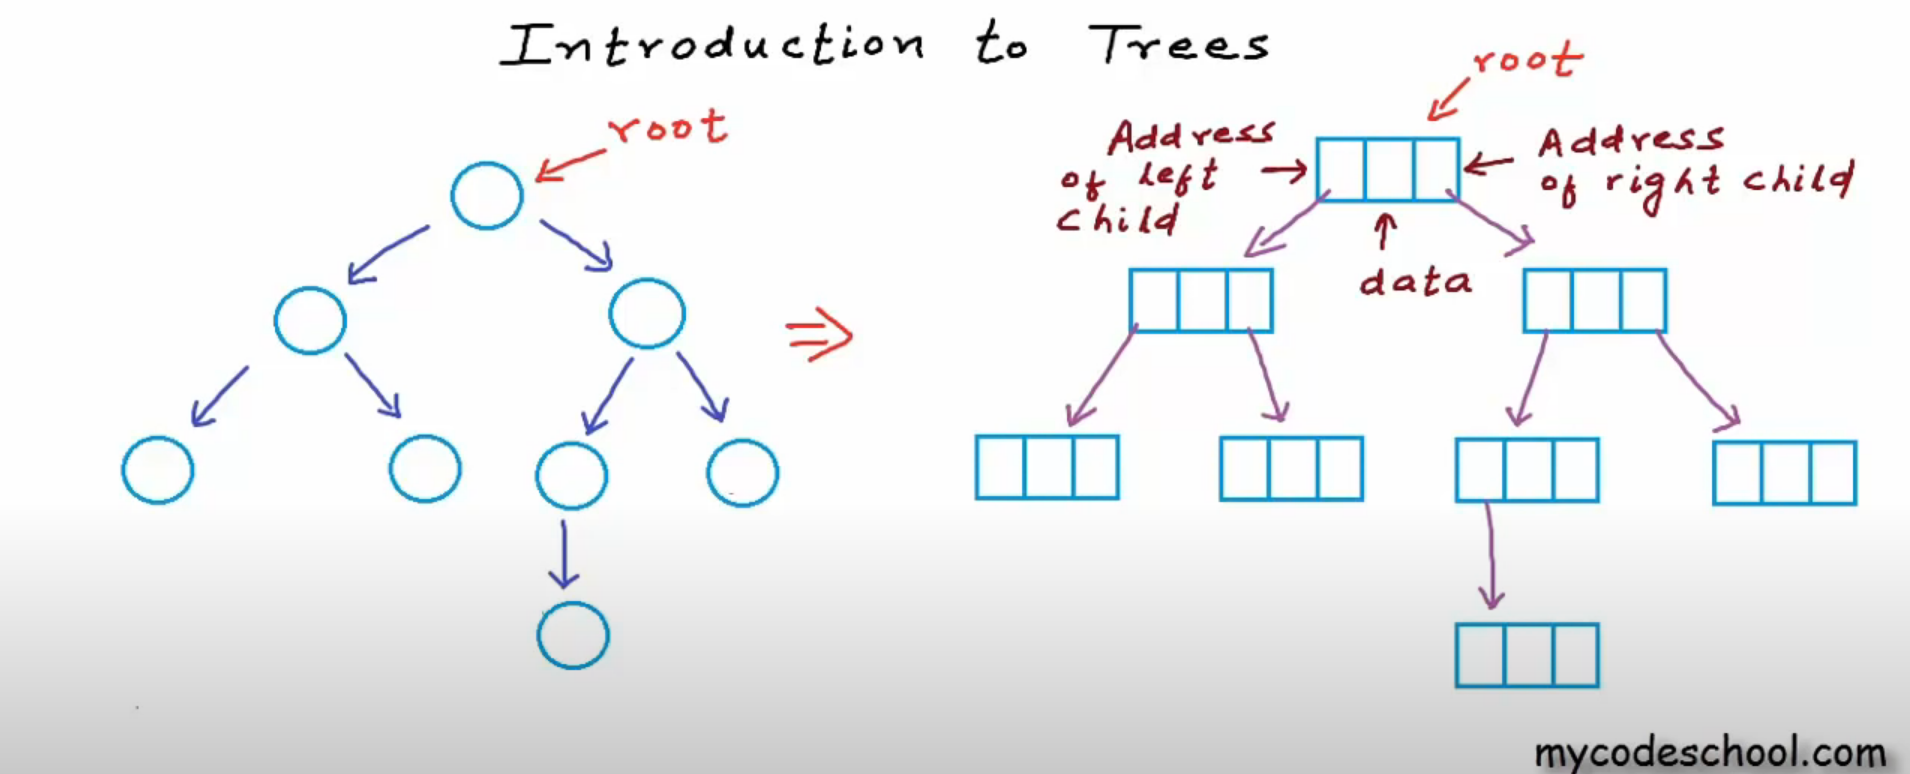 Introduction to Trees
root
root
Address
of left
child
Address
of right child
data
mycodeschool.com